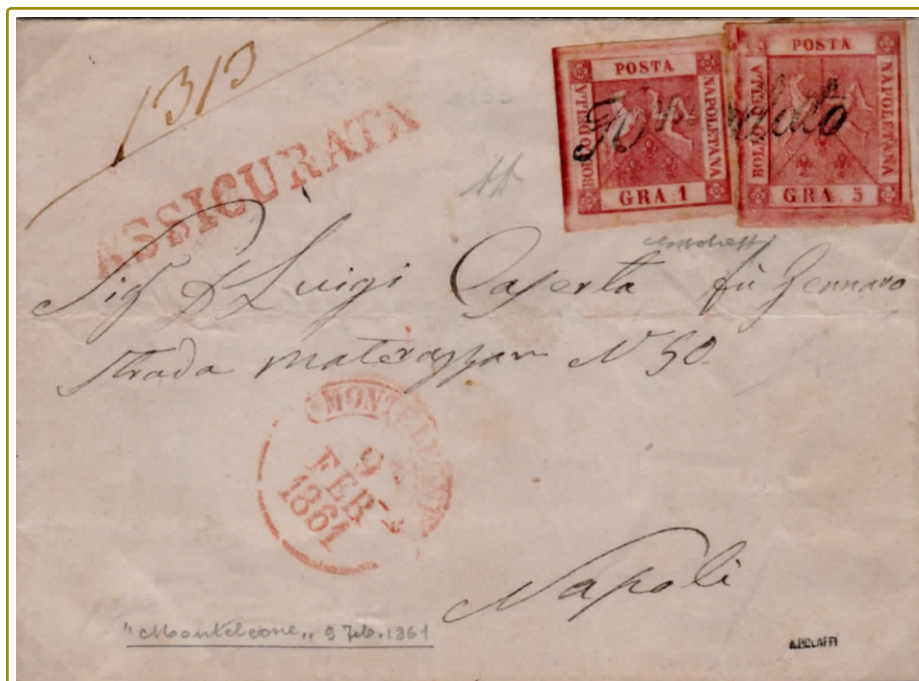 1313
ASSICURATA
POSTA
BOLLO DELLA
NAPOLETANA
GRA 1
POSTA
BOLLO DELLA
NAPOLETANA
GRA 5
Sig D Luigi Caserta fù Gennaro
Strada N 50
9
FEB
1861
Napoli
"Monteleone„ 9 Feb. 1861
A.BOLAFFI